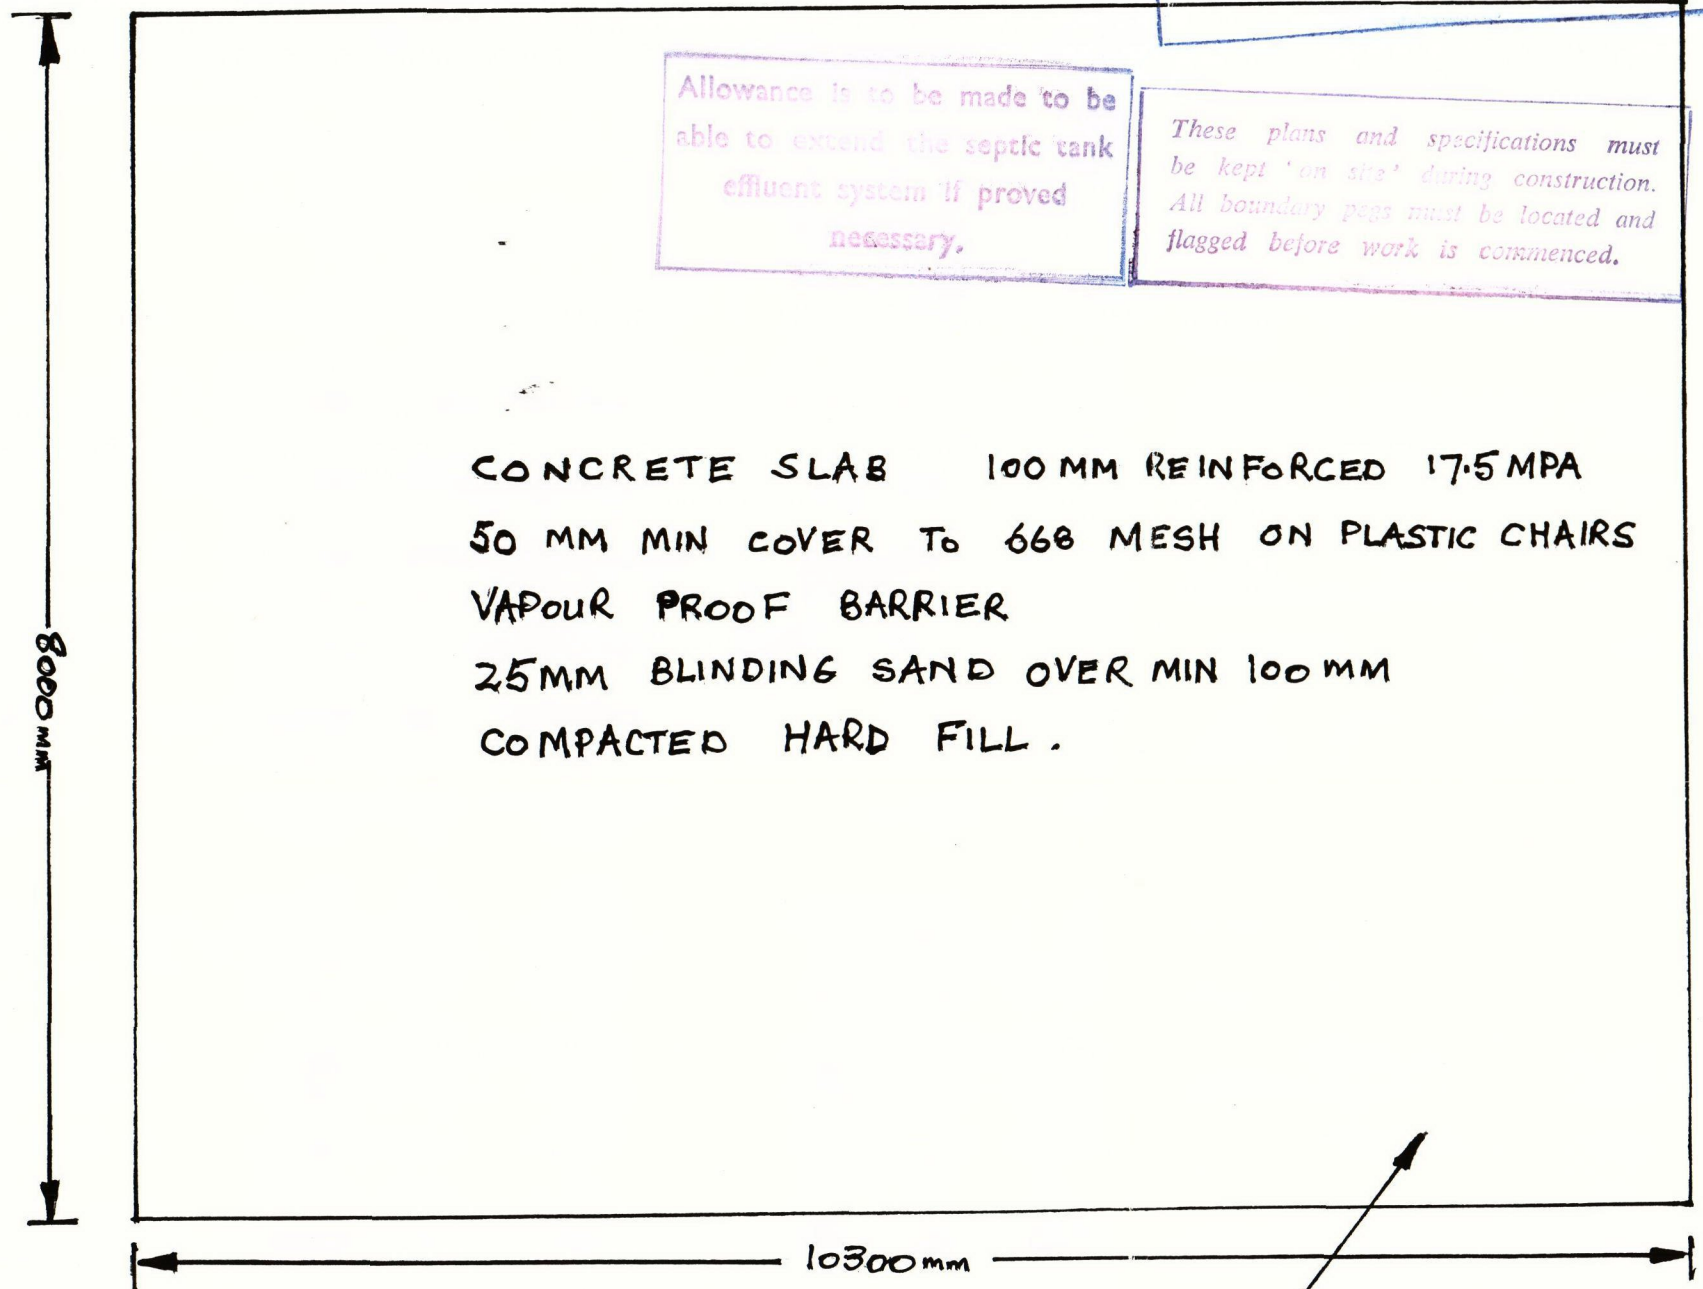 Allowance is to be made to be
able to extend the septic tank
effluent system if proved
necessary.
These plans and specifications must
be kept 'on site' during construction.
All boundary pegs must be located and
flagged before work is commenced.
CONCRETE SLAB 100 MM REINFORCED 17.5 MPA
50 MM MIN COVER TO 668 MESH ON PLASTIC CHAIRS
VAPOUR PROOF BARRIER
25MM BLINDING SAND OVER MIN 100 MM
COMPACTED HARD FILL.
8000mm
10300mm